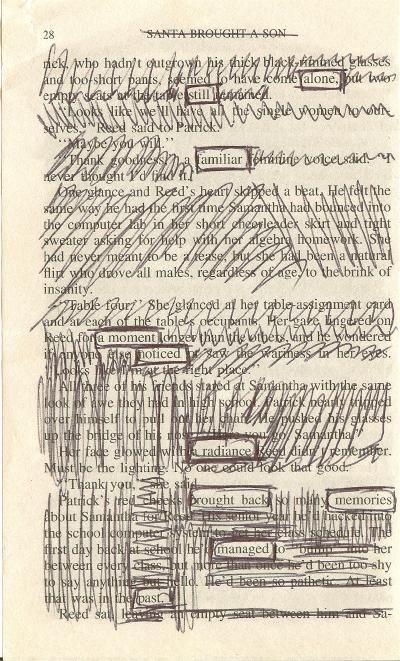 28 SANTA BROUGHT A SON
rick, who hadn't outgrown his thick black-rimmed glasses
and too-short pants, seemed to have come alone, but two
empty seats at the table still remained.
"Looks like we'll have all the single women to our-
selves," Reed said to Patrick.
"Maybe you will."
"Thank goodness," a familiar feminine voice said. "I
never thought I'd find it."
One glance and Reed's heart skipped a beat. He felt the
same way he had the first time Samantha had bounced into
the computer lab in her short cheerleader skirt and tight
sweater asking for help with her algebra homework. She
had never meant to be a tease, but she had been a natural
flirt who drove all males, regardless of age, to the brink of
insanity.
"Table four." She glanced at her table-assignment card
and at each of the table's occupants. Her gaze lingered on
Reed for a moment longer than the others, and he wondered
if anyone else noticed or saw the wariness in her eyes.
"Looks like I'm at the right place."
All three of his friends stared at Samantha with the same
look of awe they had in high school. Patrick nearly tripped
over himself to pull out her chair. He pushed his glasses
up the bridge of his nose. you go, Samantha."
Her face glowed with a radiance Reed didn't remember.
Must be the lighting. No one could look that good.
"Thank you," she said.
Patrick's red cheeks brought back so many memories
about Samantha for Reed. His senior year he'd hacked into
the school computer system to get her class schedule. The
first day back at school he'd managed to "bump" into her
between every class, but more than once he'd been too shy
to say anything but hello. He'd been so pathetic. At least
that was in the past.
Reed sat, leaving an empty seat between him and Sa-